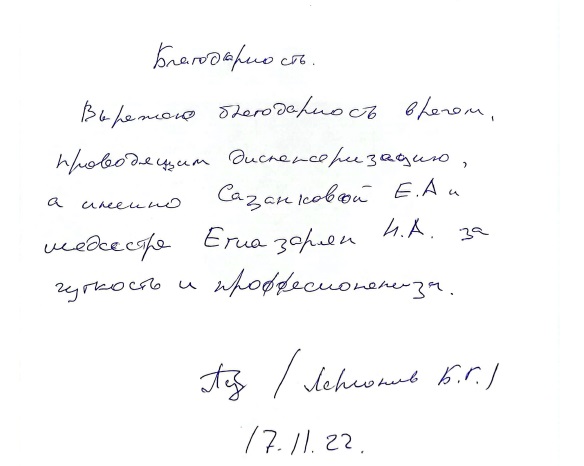 Благодарность.
Выражаю благодарность врачам,
проводящим диспансеризацию,
а именно Сазанковой Е.А и
медсестре Егиазарян И.А. за
чуткость и профессионализм.
/ Б.Г./
17.11.22.